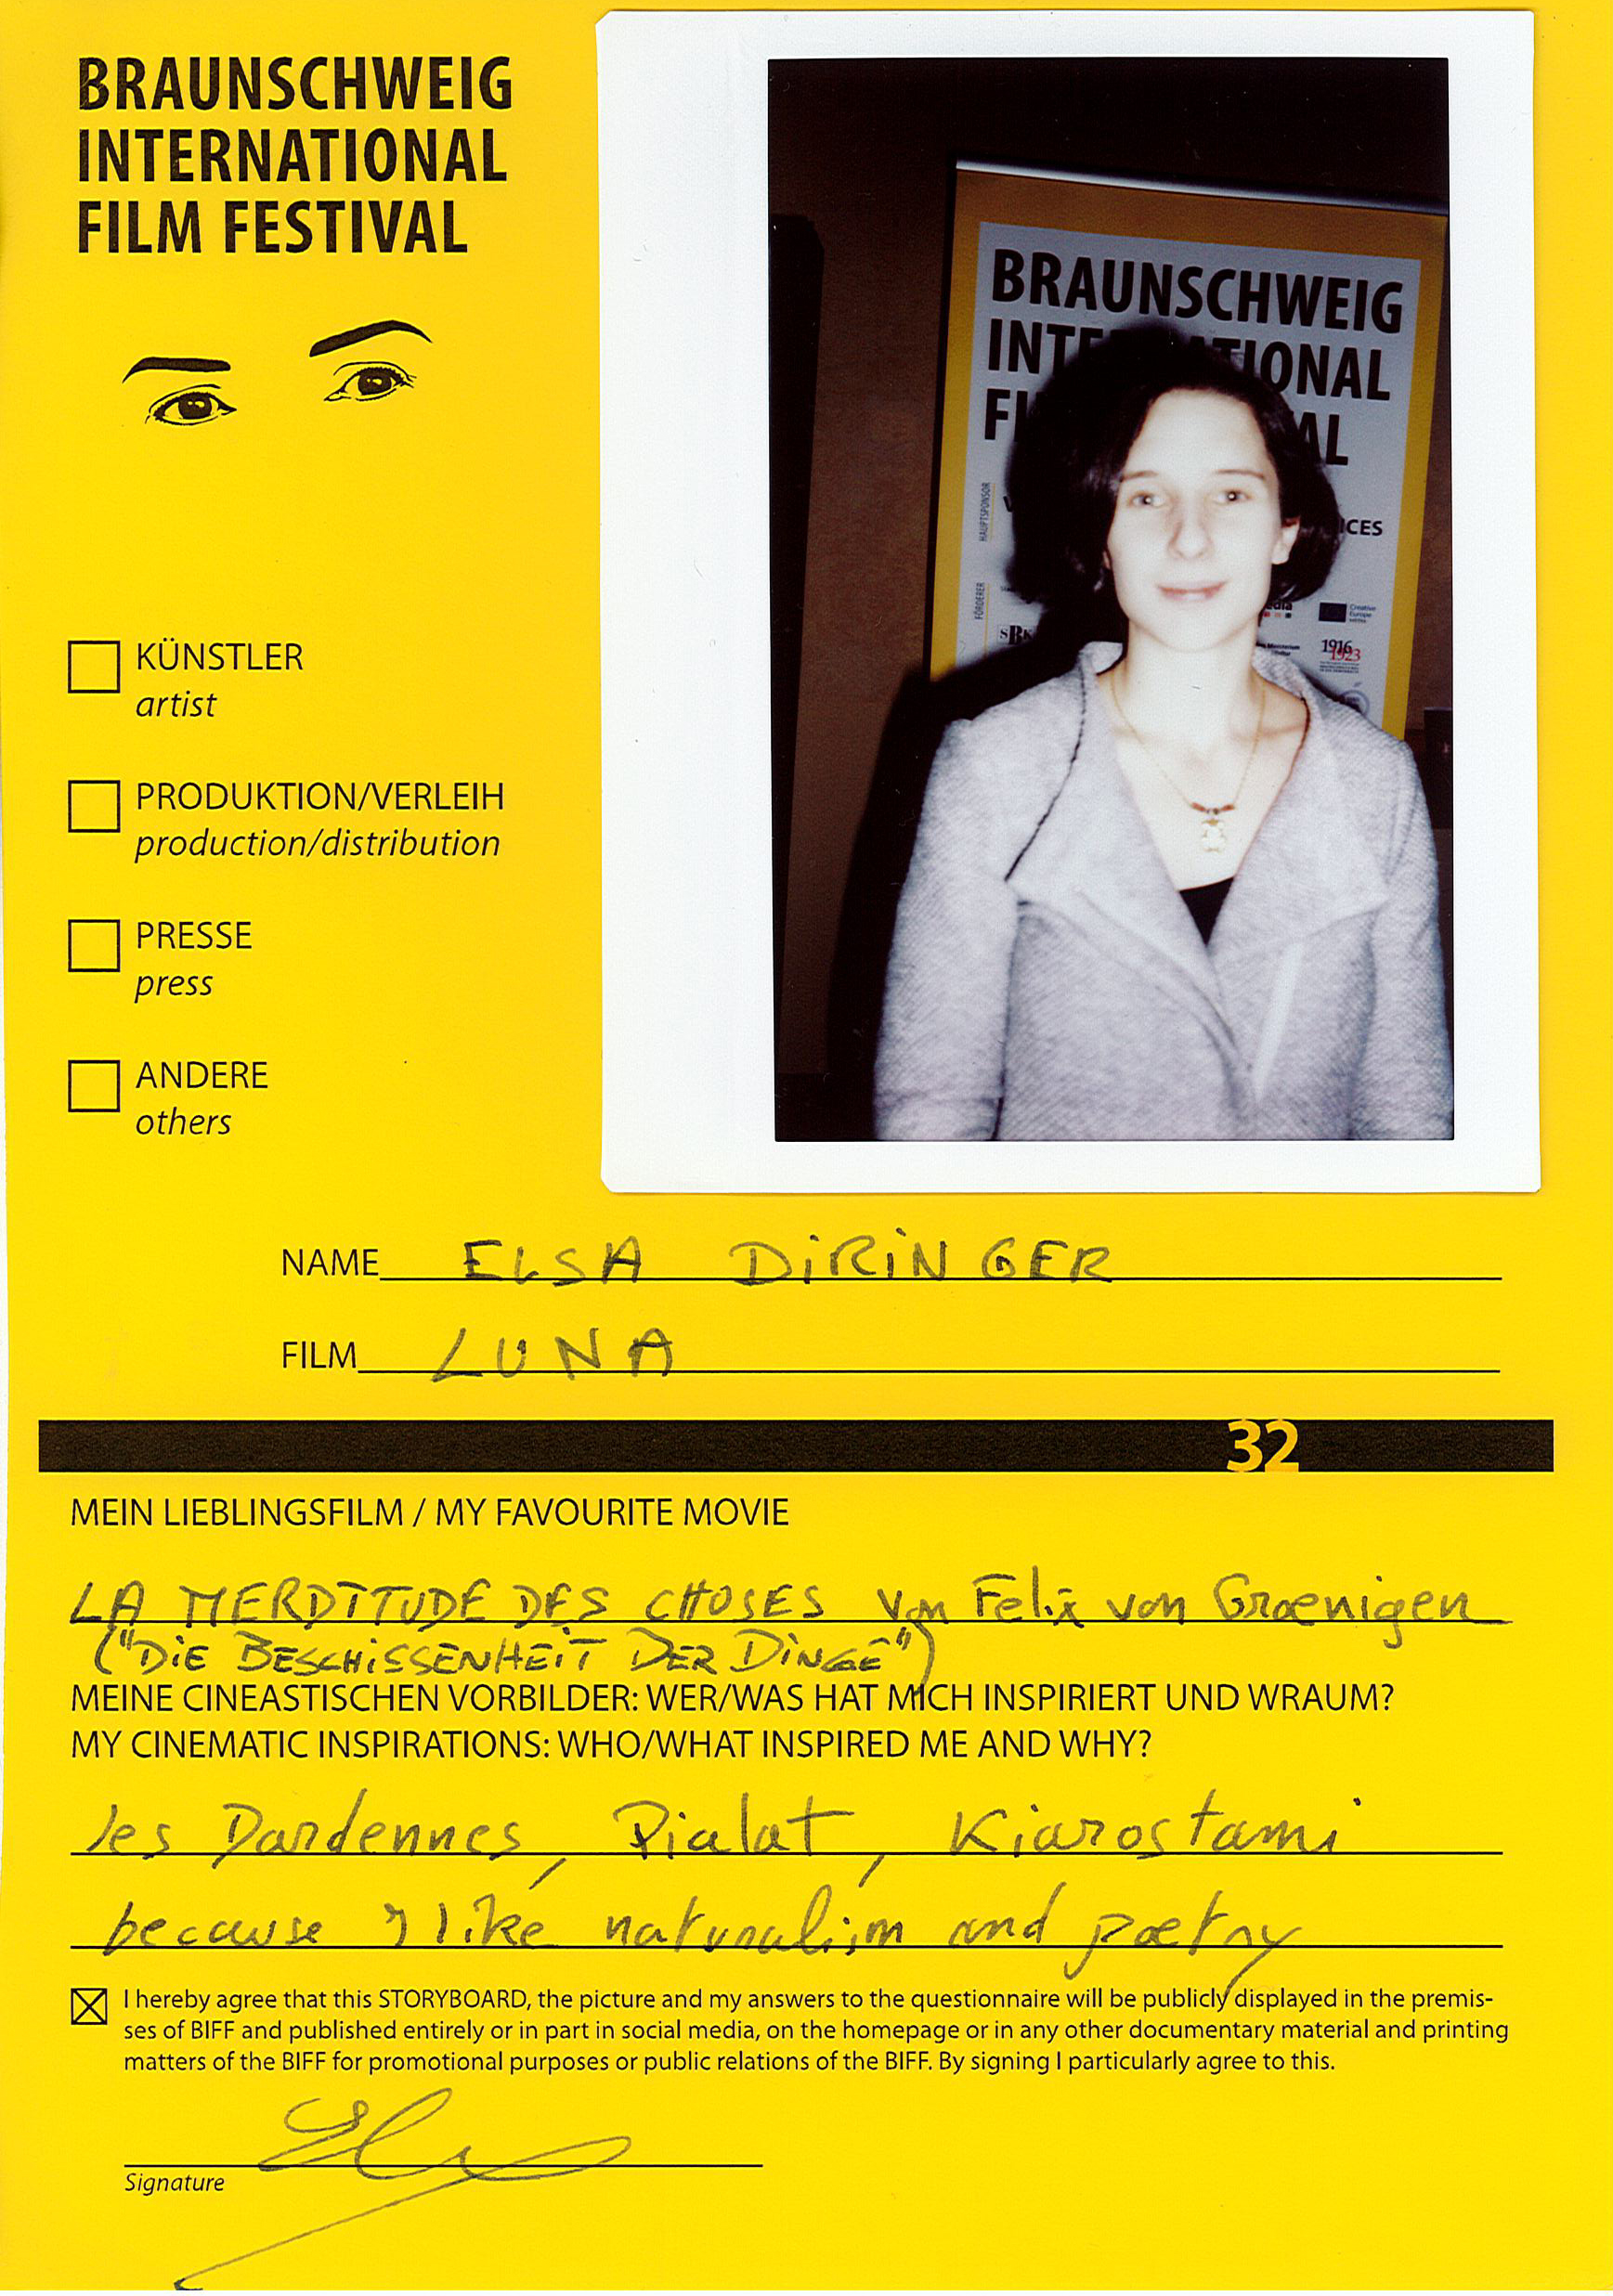 BRAUNSCHWEIG
INTERNATIONAL
FILM FESTIVAL
BRAUNSCHWEIG
ONAL
AL
HAUPTSPONSOR
ICES
FÖRDERER
Creative
Europe
1916
1923
KÜNSTLER
artist
PRODUKTION/VERLEIH
production/distribution
PRESSE
press
ANDERE
others
NAME ELSA DiRiNGER
FILM LUNA
32
MEIN LIEBLINGSFILM / MY FAVOURITE MOVIE
LA MERDITUDE DES CHOSES von Felix von Groenigen
("DiE BESCHiSSENHEiT DER DiNGE")
MEINE CINEASTISCHEN VORBILDER: WER/WAS HAT MICH INSPIRIERT UND WRAUM?
MY CINEMATIC INSPIRATIONS: WHO/WHAT INSPIRED ME AND WHY?
les Dardennes, Pialat, Kiarostami
because I like naturalism and poetry
I hereby agree that this STORYBOARD, the picture and my answers to the questionnaire will be publicly displayed in the premis-
ses of BIFF and published entirely or in part in social media, on the homepage or in any other documentary material and printing
matters of the BIFF for promotional purposes or public relations of the BIFF. By signing I particularly agree to this.
Signature